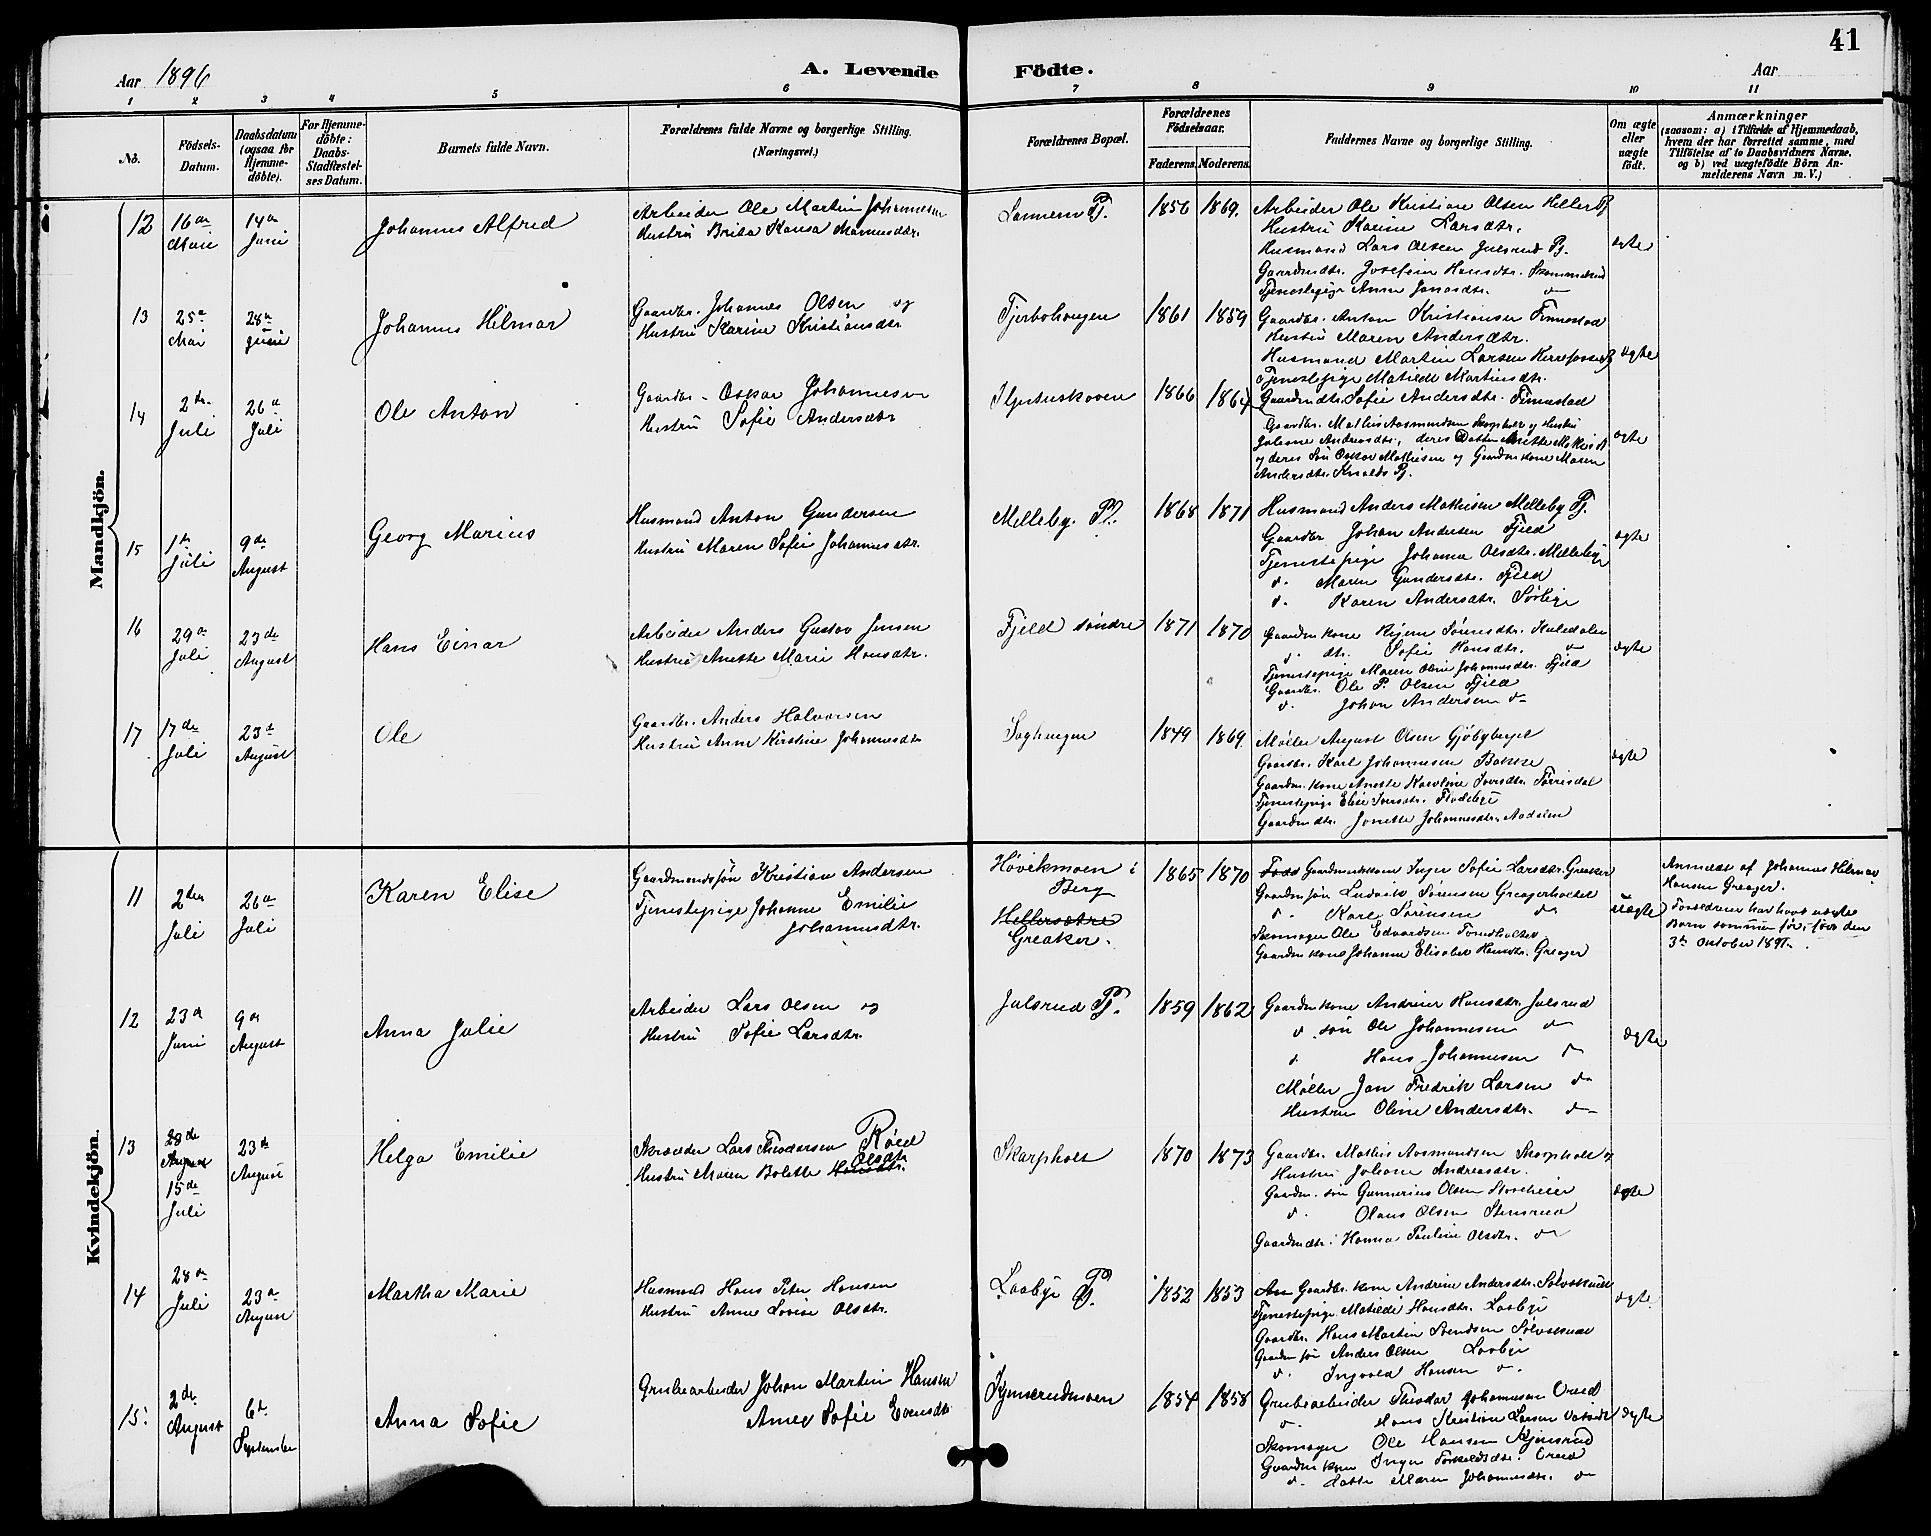 41
Aar 1896
A. Levende Födte.
Aar
1 2 3 4 5 6 7 8 9 10 11
No.
Födsels-Datum.
Daabsdatum (ogsaa for Hjemme-döbte).
For Hjemme-döbte: Daabs-Stadfæstel-ses Datum.
Barnets fulde Navn.
Forældrenes fulde Navne og borgerlige Stilling. (Næringsvei.)
Forældrenes Bopæl.
Forældrenes Födselsaar.
Faderens. Moderens.
Faddernes Navne og borgerlige Stilling.
Om ægte eller uægte födt.
Anmærkninger
(saasom: a) i Tilfælde af Hjemmedaab, hvem der har forrettet samme, med Tilföielse af to Daabsvidners Navne, og b) ved uægtefödte Börn An-melderens Navn m. V.)
Mandkjön.
12 16de Mai 14de Juni
Johannes Alfred
Arbeider Ole Martin Johannesen
Hustru
1856 1869.
Arbeider Ole Kristian Olsen Heller Pj
Hustru Karine Larsdtr.
Husmand Lars Olsen Julsrud Pj.
Gaardmdtr. Josefine Hansdtr.
Tjenestepige Anne
ægte
13 25de Mai 28de Juni
Johannes Hilmar
Gaardbr. Johannes Olsen og
Hustru Karine Kristiansdtr
Tjerbohaugen
1861 1859
Gaardbr. Anton Kristiansen Finnestad
Hustru Maren Andersdtr.
Husmand Martin Larsen
Tjenestepige Matilde Martinsdtr.
ægte
14 2den Juli 26de Juli
Ole Anton
Gaardbr. Oskar Johannesen
Hustru Sofie Andersdtr
1866 1864
Gaardmdtr. Sofie Andersdtr. Finnestad
Gaardbr. Mathis Aasmundsen Skarpholt og Hustru
Juliane Andreasdtr., deres Datter Anette
og deres Søn Oskar Mathisen og Gaardm.kone Maren
Andersdtr. Pj.
ægte
15 1ste Juli 9de August
Georg Marius
Husmand Anton Gundersen
Hustru Maren Sofie Johannesdtr.
Melleby Pl.
1868 1871
Husmand Anders Mathisen Melleby Pj.
Gaardbr Johan Andersen Fjeld
Tjenestepige Johanne Olsdtr. Melleby
do. Maren Gundersdtr. Fjeld
do. Karen Andersdtr. Sørlige
ægte
16 29de Juli 23de August
Hans Einar
Arbeider Anders Gustav Jensen
Hustru Anette Marie Hansdtr.
Fjeld søndre
1871 1870
Gaardm.kone Sørensdtr.
do. dtr. Sofie Hansdtr. do
Tjenestepige Maren Oline Johannesdtr. Fjeld
Gaardbr. Ole P. Olsen Fjeld
do. Johan Andersen do
ægte
17 17de Juli 23de August
Ole
Gaardbr. Anders Halvorsen
Hustru Anne Kirstine Johannesdtr
1849 1869.
Møller August Olsen
Gaardbr. Karl Johannesen Bakke
Gaardm.kone Anette Karoline Iversdtr. Torrisdal
Tjenestepige Elise Iversdtr.
Gaardmdtr. Jonette Johannesdtr.
ægte
Kvindekjön.
11 2den Juli 26de Juli
Karen Elise
Gaardmandssøn Kristian Andersen
Tjenestepige Johanne Emilie
Johannesdtr.
Høvikmoen i
Berg
Hellersætre
Greaker.
1865 1870
Gaardmandskone Inger Sofie Larsdtr. Greaker
Gaardm.søn Ludvik Sørensen Greagerholtet
do. Karl Sørensen do
Skomager Ole Edvardsen
Gaardm.kone Johanne Elisabet Hansdtr. Greager
uægte
Anmeldt af Johannes Hilmar
Hansen Greager.
Forældrene har havt uægte
Barn sammen før, født den
3de Oktober 1891.
12 23de Juni 9de August
Anna Julie
Arbeider Lars Olsen og
Hustru Sofie Larsdtr.
Julsrud Pj.
1859 1862
Gaardm.kone Andrine Hansdtr. Julsrud
do. søn Ole Johannesen do
do. Hans Johannesen do
Møller Jan Fredrik Larsen do
Hustru Oline Andersdtr. do
ægte
13 28de August
15de Juli
23de August
Helga Emilie
Skrædder Lars Theodorsen Røed
Hustru Maren Bolette Hansdtr. Olsdtr
Skarpholt
1870 1873
Gaardbr. Mathis Aasmundsen Skarpholt og
Hustru Juliane Andreasdtr.
Gaardm. søn Gunnerius Olsen Storeheier
do. Olaus Olsen Stensrud
Gaardmdtr. Hanna Pauline Olsdtr. do
ægte
14 28de Juli 23de August
Martha Marie
Husmand Hans Peter Hansen
Hustru Anne Lovise Olsdtr.
Laabyi Pj.
1852 1853
An Gaardbr. kone Andrine Andersdtr.
Tjenestepige Matilde Hansdtr. Laabyi
Gaardbr. Hans Martin Svendsen
Gaardm søn Anders Olsen Laabyi
do. Ingvald Hansen do.
ægte
15. 2den August 6te September
Anna Sofie
Grubearbeider Johan Martin Hansen
Anne Sofie Evensdtr
1854 1858
Grubearbeider Theodor Johannesen Ørud
do. Hans Kristian Larsen
Skomager Ole Hansen
Gaardm.kone Inger Torkildsdtr. Ørud
do. Datter Maren Johannesdtr. do
ægte